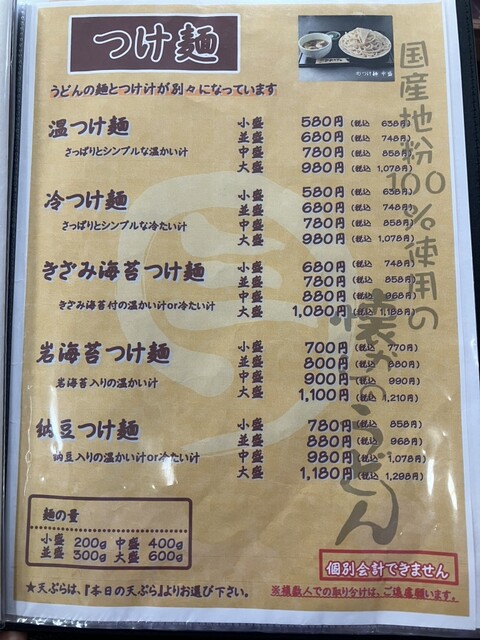 つけ麺
のつけ麺 中盛
国産地粉100%使用の
懐かうどん
うどんの麺とつけ汁が別々になっています
温つけ麺 小盛 580円 (税込 638円)
並盛 680円 (税込 748円)
さっぱりとシンプルな温かい汁 中盛 780円 (税込 858円)
大盛 980円 (税込 1,078円)
冷つけ麺 小盛 580円 (税込 638円)
並盛 680円 (税込 748円)
さっぱりとシンプルな冷たい汁 中盛 780円 (税込 858円)
大盛 980円 (税込 1,078円)
きざみ海苔つけ麺 小盛 680円 (税込 748円)
並盛 780円 (税込 858円)
きざみ海苔付の温かい汁or冷たい汁 中盛 880円 (税込 968円)
大盛 1,080円 (税込 1,188円)
岩海苔つけ麺 小盛 700円 (税込 770円)
並盛 800円 (税込 880円)
岩海苔入りの温かい汁 中盛 900円 (税込 990円)
大盛 1,100円 (税込 1,210円)
納豆つけ麺 小盛 780円 (税込 858円)
並盛 880円 (税込 968円)
納豆入りの温かい汁or冷たい汁 中盛 980円 (税込 1,078円)
大盛 1,180円 (税込 1,298円)
麺の量
小盛 200g 中盛 400g
並盛 300g 大盛 600g
個別会計できません
★天ぷらは、『本日の天ぷら』よりお選び下さい。
※複数人での取り分けは、ご遠慮願います。